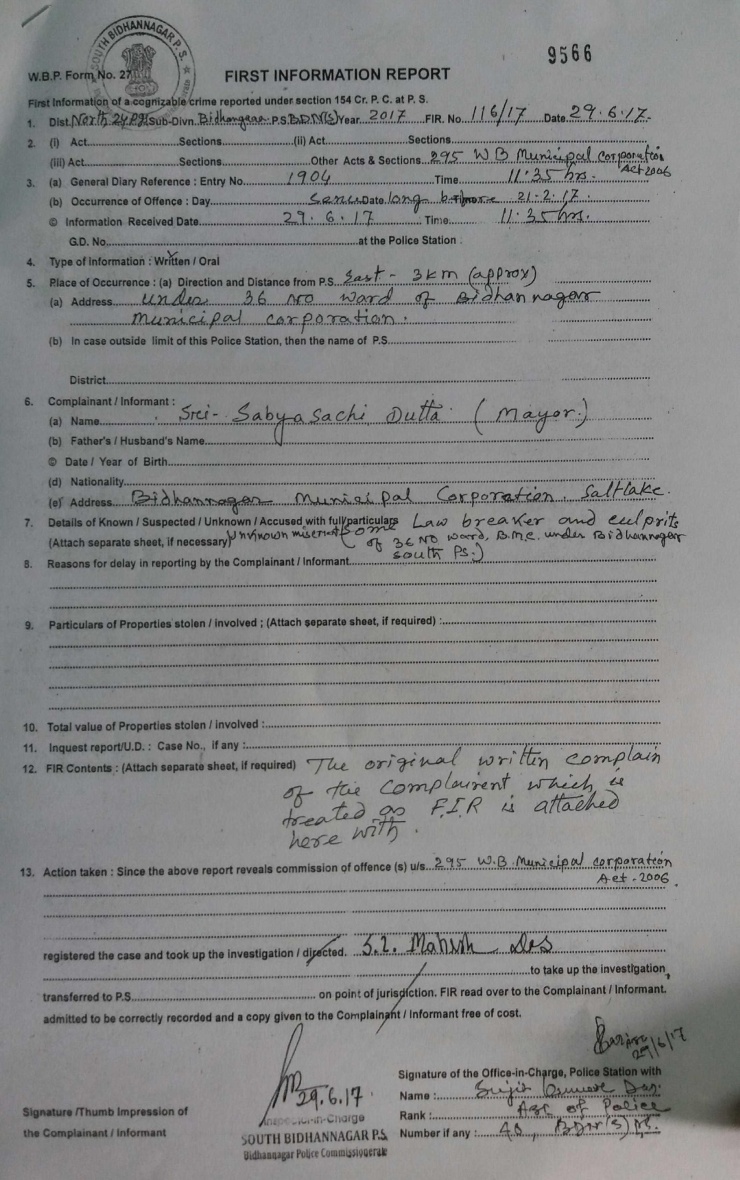 SOUTH BIDHANNAGAR P. S.
9566
W.B.P. Form No. 27
FIRST INFORMATION REPORT
First Information of a cognizable crime reported under section 154 Cr. P. C. at P. S.
1. Dist. North 24 Pgs Sub-Divn. Bidhannagar P.S. BDN(S) Year 2017 FIR. No. 116/17 Date 29.6.17.
2. (i) Act Sections (ii) Act Sections
(iii) Act Sections Other Acts & Sections 295 W B Municipal corporation Act 2006
3. (a) General Diary Reference : Entry No. 1904 Time 11:35 hrs.
(b) Occurrence of Offence : Day Since Date long before 21-2.17.
© Information Received Date 29.6.17 Time 11:35 hrs.
G.D. No. at the Police Station :
4. Type of Information : Written / Oral
5. Place of Occurrence : (a) Direction and Distance from P.S. East - 3 km (approx)
(a) Address under 36 NO ward of Bidhannagar
Municipal corporation.
(b) In case outside limit of this Police Station, then the name of P.S.
District
6. Complainant / Informant :
(a) Name Sri- Sabyasachi Dutta (Mayor.)
(b) Father's / Husband's Name
© Date / Year of Birth
(d) Nationality
(e) Address Bidhannagar Municipal Corporation Saltlake.
7. Details of Known / Suspected / Unknown / Accused with full particulars Law breaker and culprits
(Attach separate sheet, if necessary) Unknown of 36 NO word, B.M.C. under Bidhannagar
South PS.)
8. Reasons for delay in reporting by the Complainant / Informant
9. Particulars of Properties stolen / involved ; (Attach separate sheet, if required) :
10. Total value of Properties stolen / involved :
11. Inquest report/U.D. : Case No., if any :
12. FIR Contents : (Attach separate sheet, if required) The original written complain
of the complainent which is
treated as F.I.R is attached
here with.
13. Action taken : Since the above report reveals commission of offence (s) u/s. 295 W.B. Municipal corporation
Act-2006.
registered the case and took up the investigation / directed. S.I. Mahesh Des
to take up the investigation,
transferred to P.S. on point of jurisdiction. FIR read over to the Complainant / Informant.
admitted to be correctly recorded and a copy given to the Complainant / Informant free of cost.
29/6/17
Signature of the Office-in-Charge, Police Station with
29.6.17
Name : Sujit
Signature /Thumb Impression of
Inspector-in-Charge
Rank : of Police
the Complainant / Informant
SOUTH BIDHANNAGAR P.S.
Number if any :
Bidhannagar Police Commissionerate